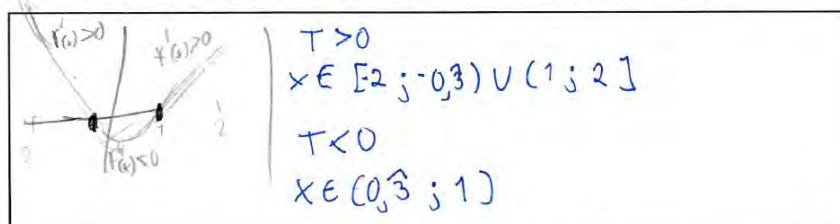 f'(x)>0
f'(x)>0
1
2
f'(x)<0
T>0
x∈[-2;-0,3̂)∪(1;2]
T<0
x∈(0,3̂;1)